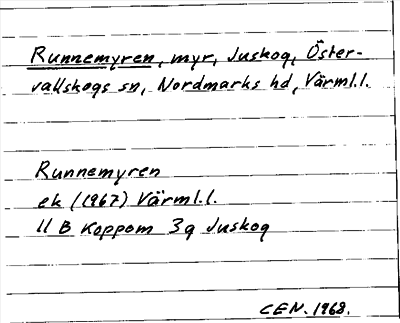 Runnemyren, myr, Juskog, Öster-
vallskogs sn, Nordmarks hd, Värml.l.
Runnemyren
ek (1967) Värml.l.
11 B Koppom 3g Juskog
CEN. 1968.